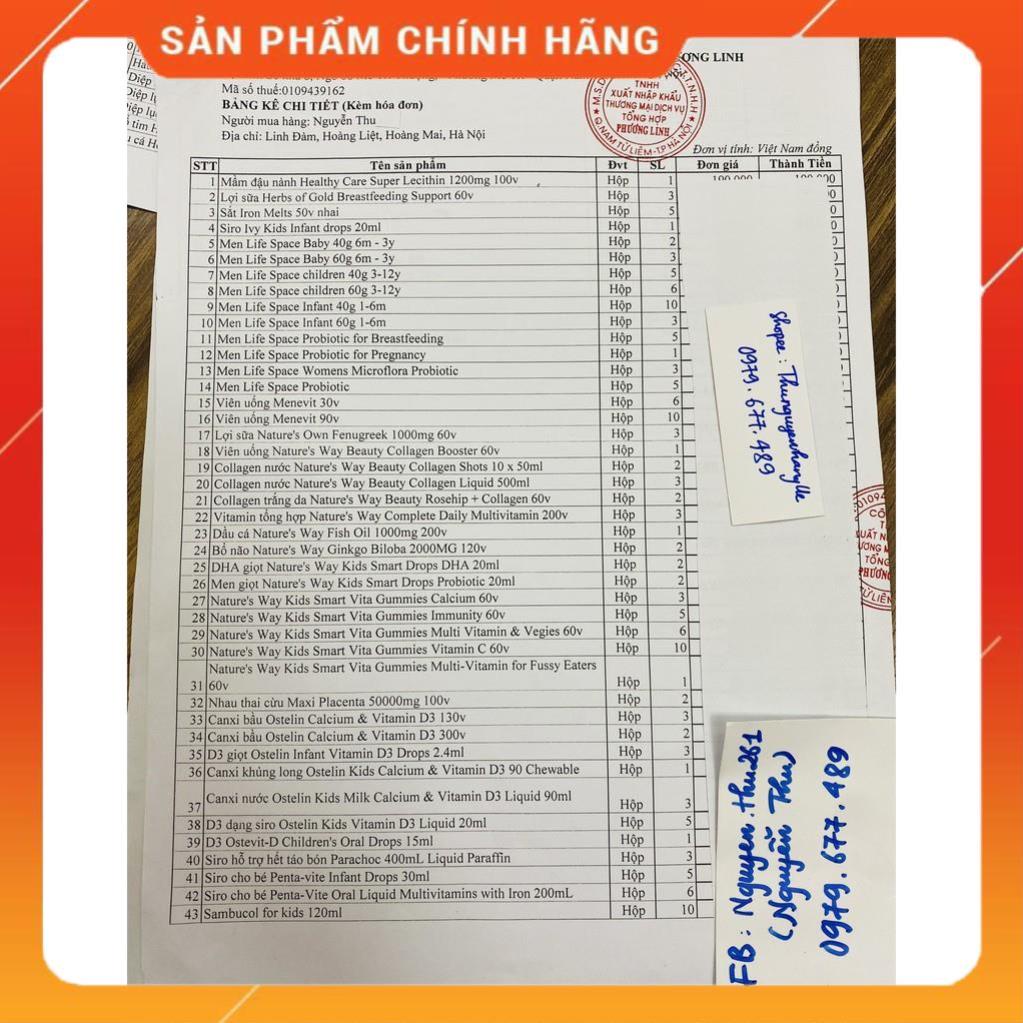 SẢN PHẨM CHÍNH HÃNG
ƯƠNG LINH
Mã số thuế:0109439162
BẢNG KÊ CHI TIẾT (Kèm hóa đơn)
Người mua hàng: Nguyễn Thu
Địa chỉ: Linh Đàm, Hoàng Liệt, Hoàng Mai, Hà Nội
TNHH
XUẤT NHẬP KHẨU
THƯƠNG MẠI DỊCH VỤ
TỔNG HỢP
PHƯƠNG LINH
Q.NAM TỪ LIÊM-TP HÀ NỘI
Đơn vị tính: Việt Nam đồng
STT Tên sản phẩm Đvt SL Đơn giá Thành Tiền
1 Mầm đậu nành Healthy Care Super Lecithin 1200mg 100v Hộp 1
2 Lợi sữa Herbs of Gold Breastfeeding Support 60v Hộp 3
3 Sắt Iron Melts 50v nhai Hộp 5
4 Siro Ivy Kids Infant drops 20ml Hộp 1
5 Men Life Space Baby 40g 6m - 3y Hộp 2
6 Men Life Space Baby 60g 6m - 3y Hộp 3
7 Men Life Space children 40g 3-12y Hộp 5
8 Men Life Space children 60g 3-12y Hộp 6
9 Men Life Space Infant 40g 1-6m Hộp 10
10 Men Life Space Infant 60g 1-6m Hộp 3
11 Men Life Space Probiotic for Breastfeeding Hộp 5
12 Men Life Space Probiotic for Pregnancy Hộp 1
13 Men Life Space Womens Microflora Probiotic Hộp 3
14 Men Life Space Probiotic Hộp 5
15 Viên uống Menevit 30v Hộp 6
16 Viên uống Menevit 90v Hộp 10
17 Lợi sữa Nature's Own Fenugreek 1000mg 60v Hộp 3
18 Viên uống Nature's Way Beauty Collagen Booster 60v Hộp 1
19 Collagen nước Nature's Way Beauty Collagen Shots 10 x 50ml Hộp 2
20 Collagen nước Nature's Way Beauty Collagen Liquid 500ml Hộp 3
21 Collagen trắng da Nature's Way Beauty Rosehip + Collagen 60v Hộp 2
22 Vitamin tổng hợp Nature's Way Complete Daily Multivitamin 200v Hộp 3
23 Dầu cá Nature's Way Fish Oil 1000mg 200v Hộp 1
24 Bổ não Nature's Way Ginkgo Biloba 2000MG 120v Hộp 2
25 DHA giọt Nature's Way Kids Smart Drops DHA 20ml Hộp 2
26 Men giọt Nature's Way Kids Smart Drops Probiotic 20ml Hộp 2
27 Nature's Way Kids Smart Vita Gummies Calcium 60v Hộp 3
28 Nature's Way Kids Smart Vita Gummies Immunity 60v Hộp 5
29 Nature's Way Kids Smart Vita Gummies Multi Vitamin & Vegies 60v Hộp 6
30 Nature's Way Kids Smart Vita Gummies Vitamin C 60v Hộp 10
Nature's Way Kids Smart Vita Gummies Multi-Vitamin for Fussy Eaters
31 60v Hộp 1
32 Nhau thai cừu Maxi Placenta 50000mg 100v Hộp 2
33 Canxi bầu Ostelin Calcium & Vitamin D3 130v Hộp 3
34 Canxi bầu Ostelin Calcium & Vitamin D3 300v Hộp 2
35 D3 giọt Ostelin Infant Vitamin D3 Drops 2.4ml Hộp 3
36 Canxi khủng long Ostelin Kids Calcium & Vitamin D3 90 Chewable Hộp 1
37 Canxi nước Ostelin Kids Milk Calcium & Vitamin D3 Liquid 90ml Hộp 3
38 D3 dạng siro Ostelin Kids Vitamin D3 Liquid 20ml Hộp 5
39 D3 Ostevit-D Children's Oral Drops 15ml Hộp 1
40 Siro hỗ trợ hết táo bón Parachoc 400mL Liquid Paraffin Hộp 3
41 Siro cho bé Penta-vite Infant Drops 30ml Hộp 5
42 Siro cho bé Penta-Vite Oral Liquid Multivitamins with Iron 200mL Hộp 6
43 Sambucol for kids 120ml Hộp 10
Shopee: ThunguyenhangUc
0979.677.489
FB: Nguyen.thu261
(Nguyễn Thu)
0979.677.489